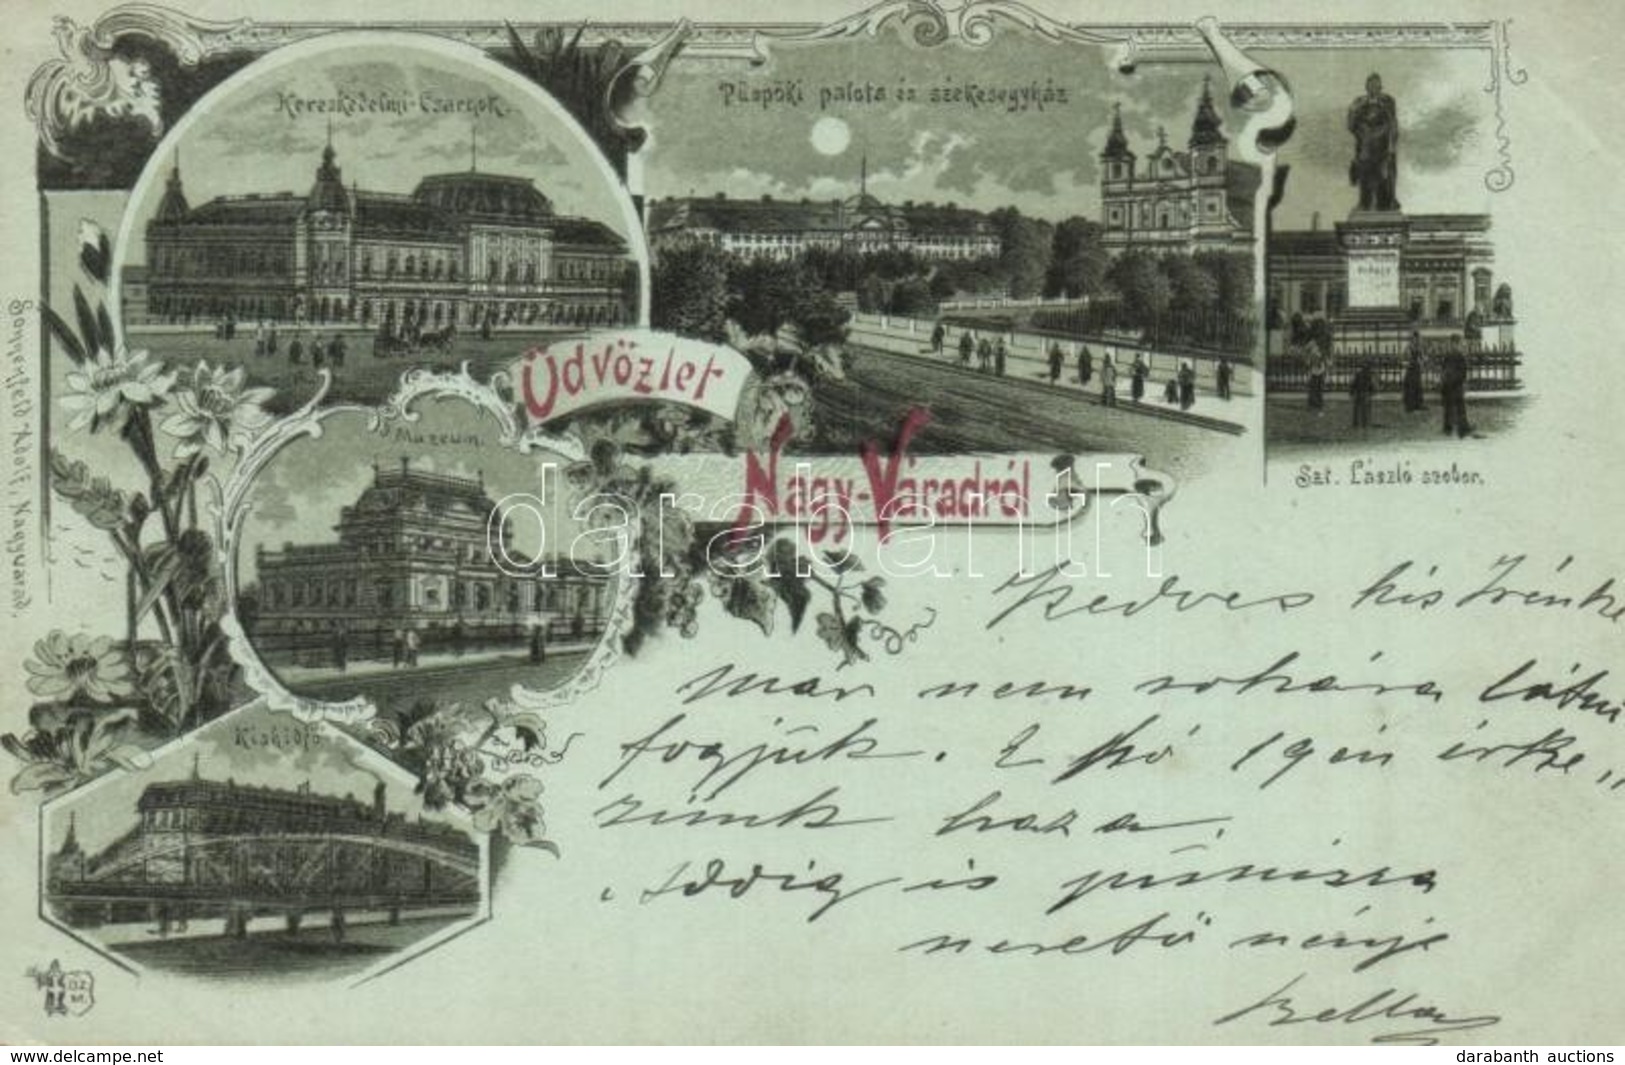 Kereskedelmi-Csarnok.
Püspöki palota és székesegyház
Üdvözlet
Nagy-Váradról
Múzeum.
Szt. László szobor.
Kishidfő
Sonnenfeld Adolf, Nagyvárad.
Kedves kis Irénke
már nem sokára látni
fogjuk. E hó 19én érke„
zünk haza.
Addig is
szerető nénje
Bella
darabanth
darabanth auctions
www.delcampe.net